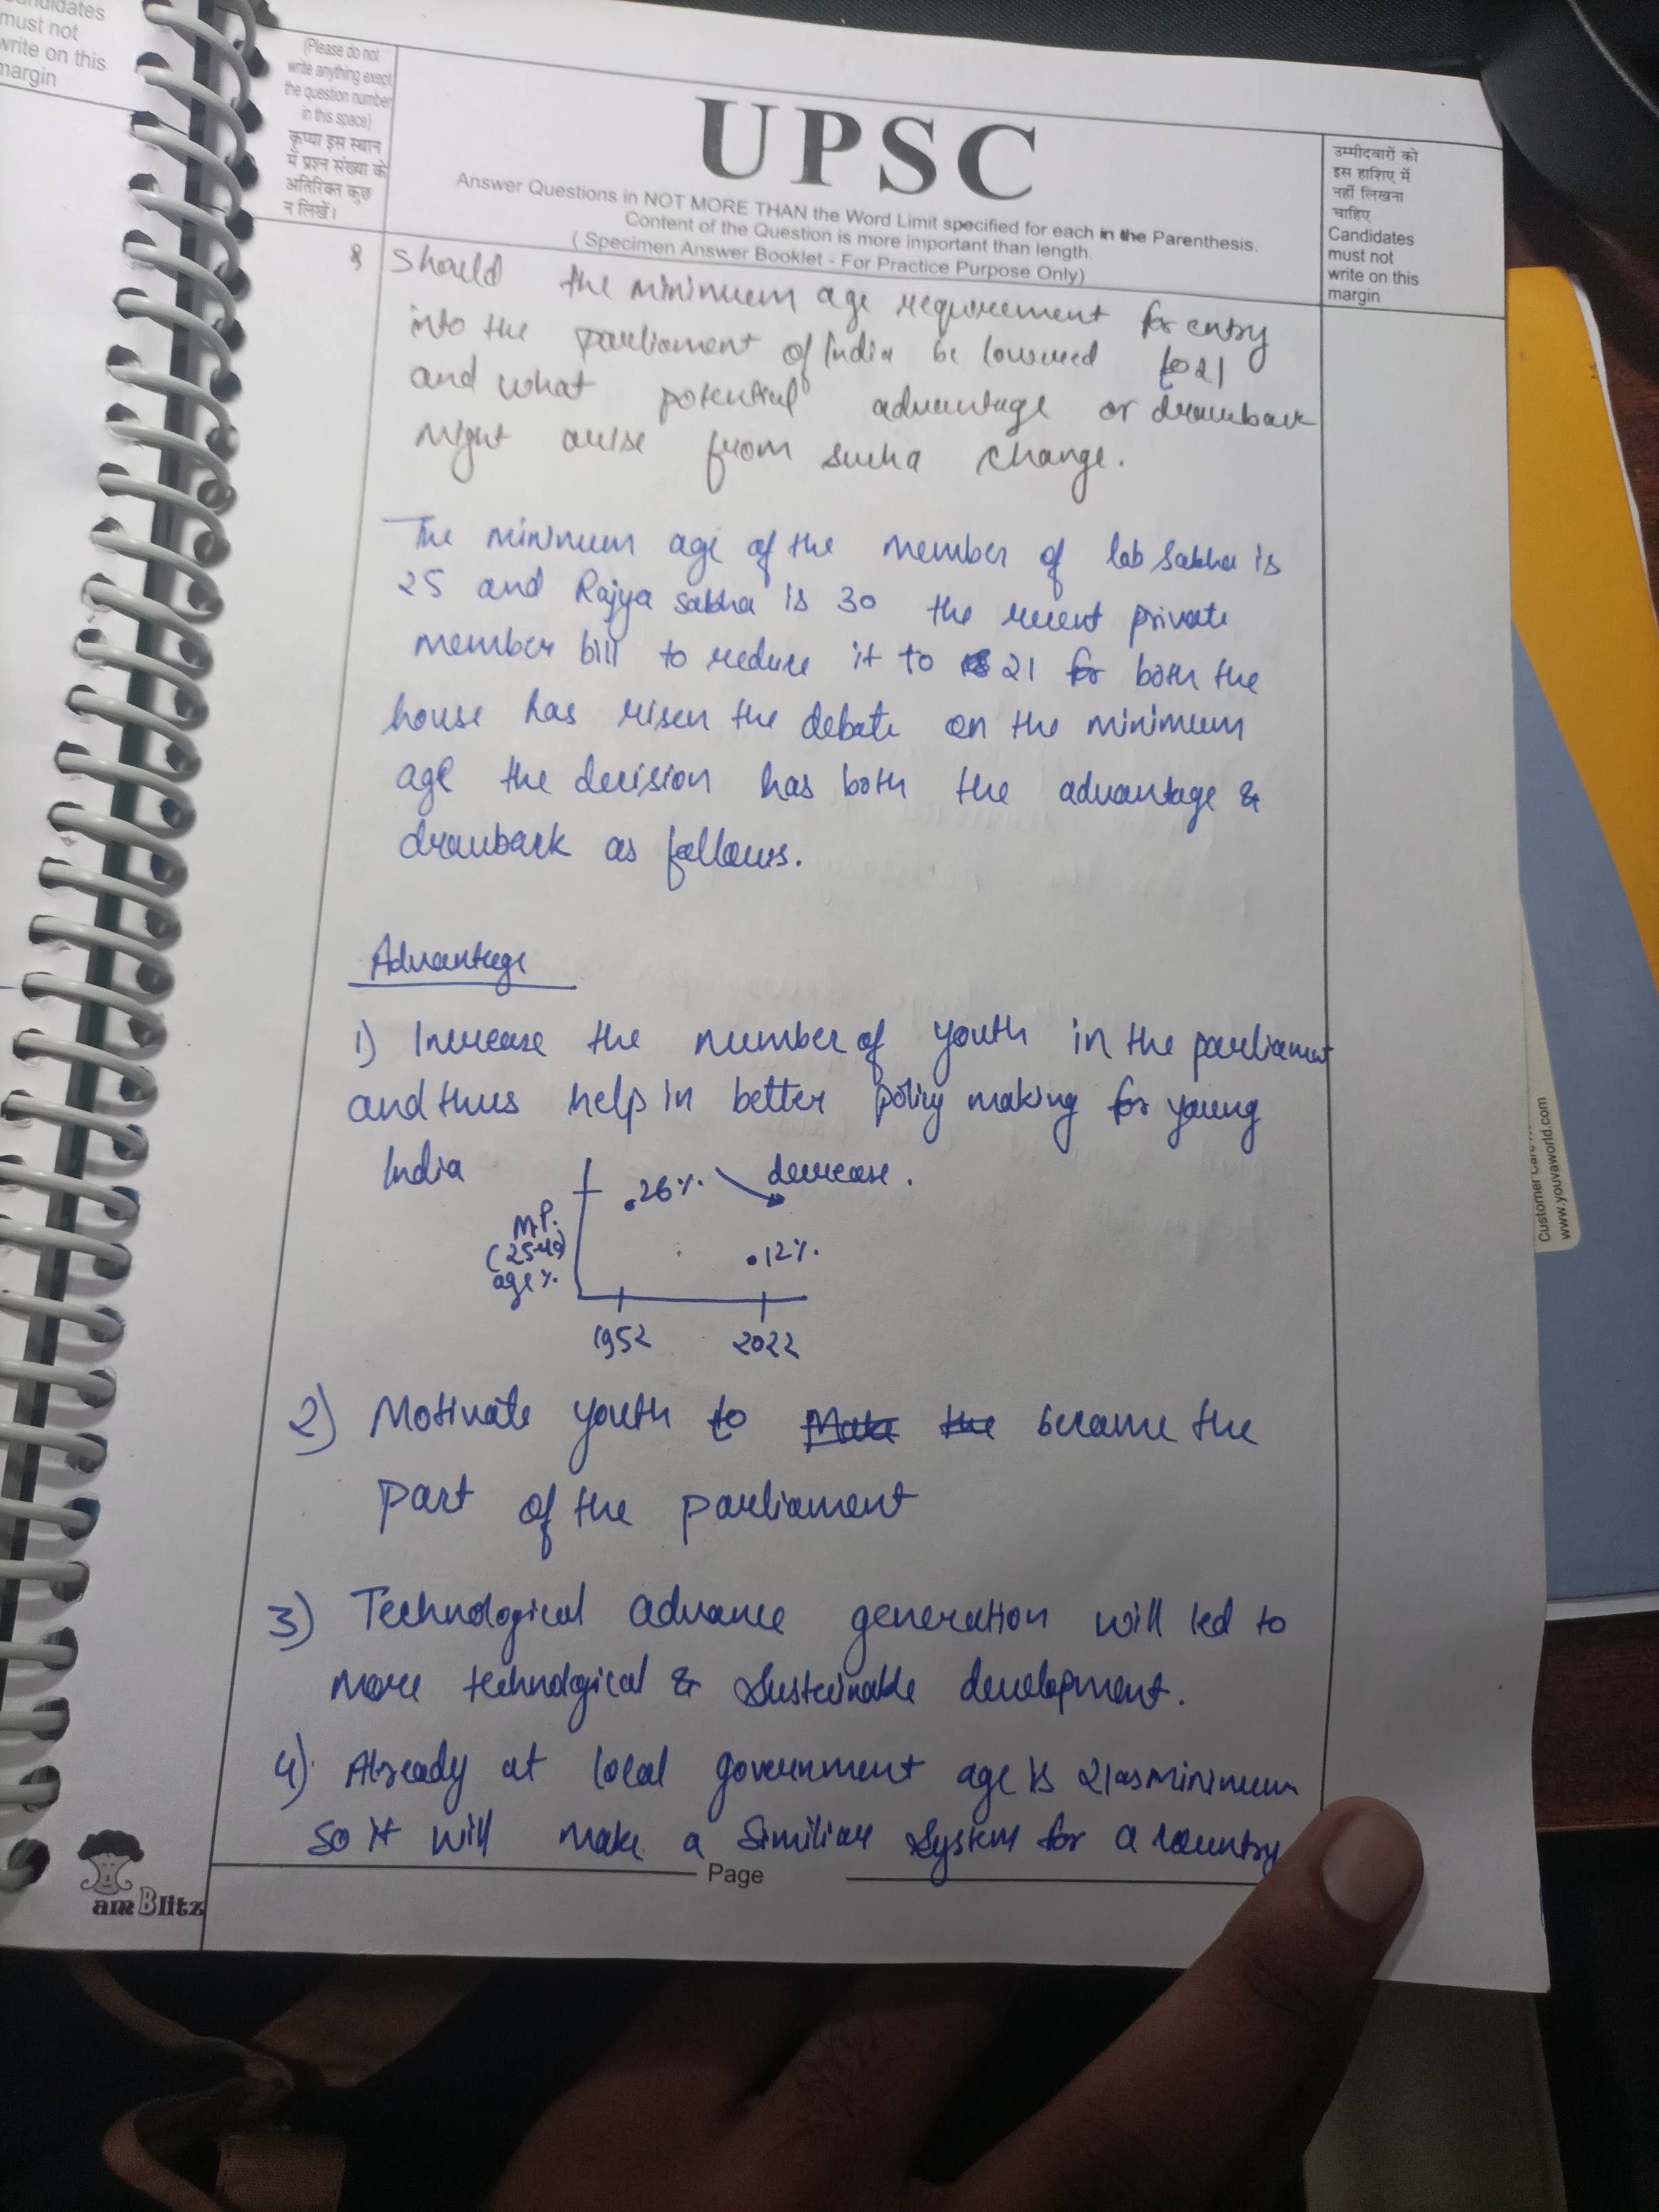 andidates
must not
write on this
margin
(Please do not
write anything exept
the question number
in this space)
कृप्या इस स्थान
में प्रश्न संख्या के
अतिरिक्त कुछ
न लिखें।
UPSC
Answer Questions in NOT MORE THAN the Word Limit specified for each in the Parenthesis.
Content of the Question is more important than length.
( Specimen Answer Booklet - For Practice Purpose Only)
उम्मीदवारों को
इस हाशिए में
नहीं लिखना
चाहिए
Candidates
must not
write on this
margin
Should the minimum age requirement for entry
into the parliament of India be lowered to 21
and what potential advantage or drawback
might arise from such a change.
The minimum age of the member of lob Sabha is
25 and Rajya sabha is 30 the recent private
member bill to reduce it to 21 for both the
house has risen the debate on the minimum
age the decision has both the advantage &
drawback as follows.
Advantage
1) Increase the number of youth in the parliament
and thus help in better policy making for young
India
.26% decrease.
M.P.
(25-40)
age %.
.12%.
1952 2022
2) Motivate youth to became the
part of the parliament
3) Technological advance generation will led to
more technological & Sustainable development.
4) Already at local government age is 21 as minimum
so it will make a similiar system for a country
Page
am Blitz
Customer Care
www.youvaworld.com